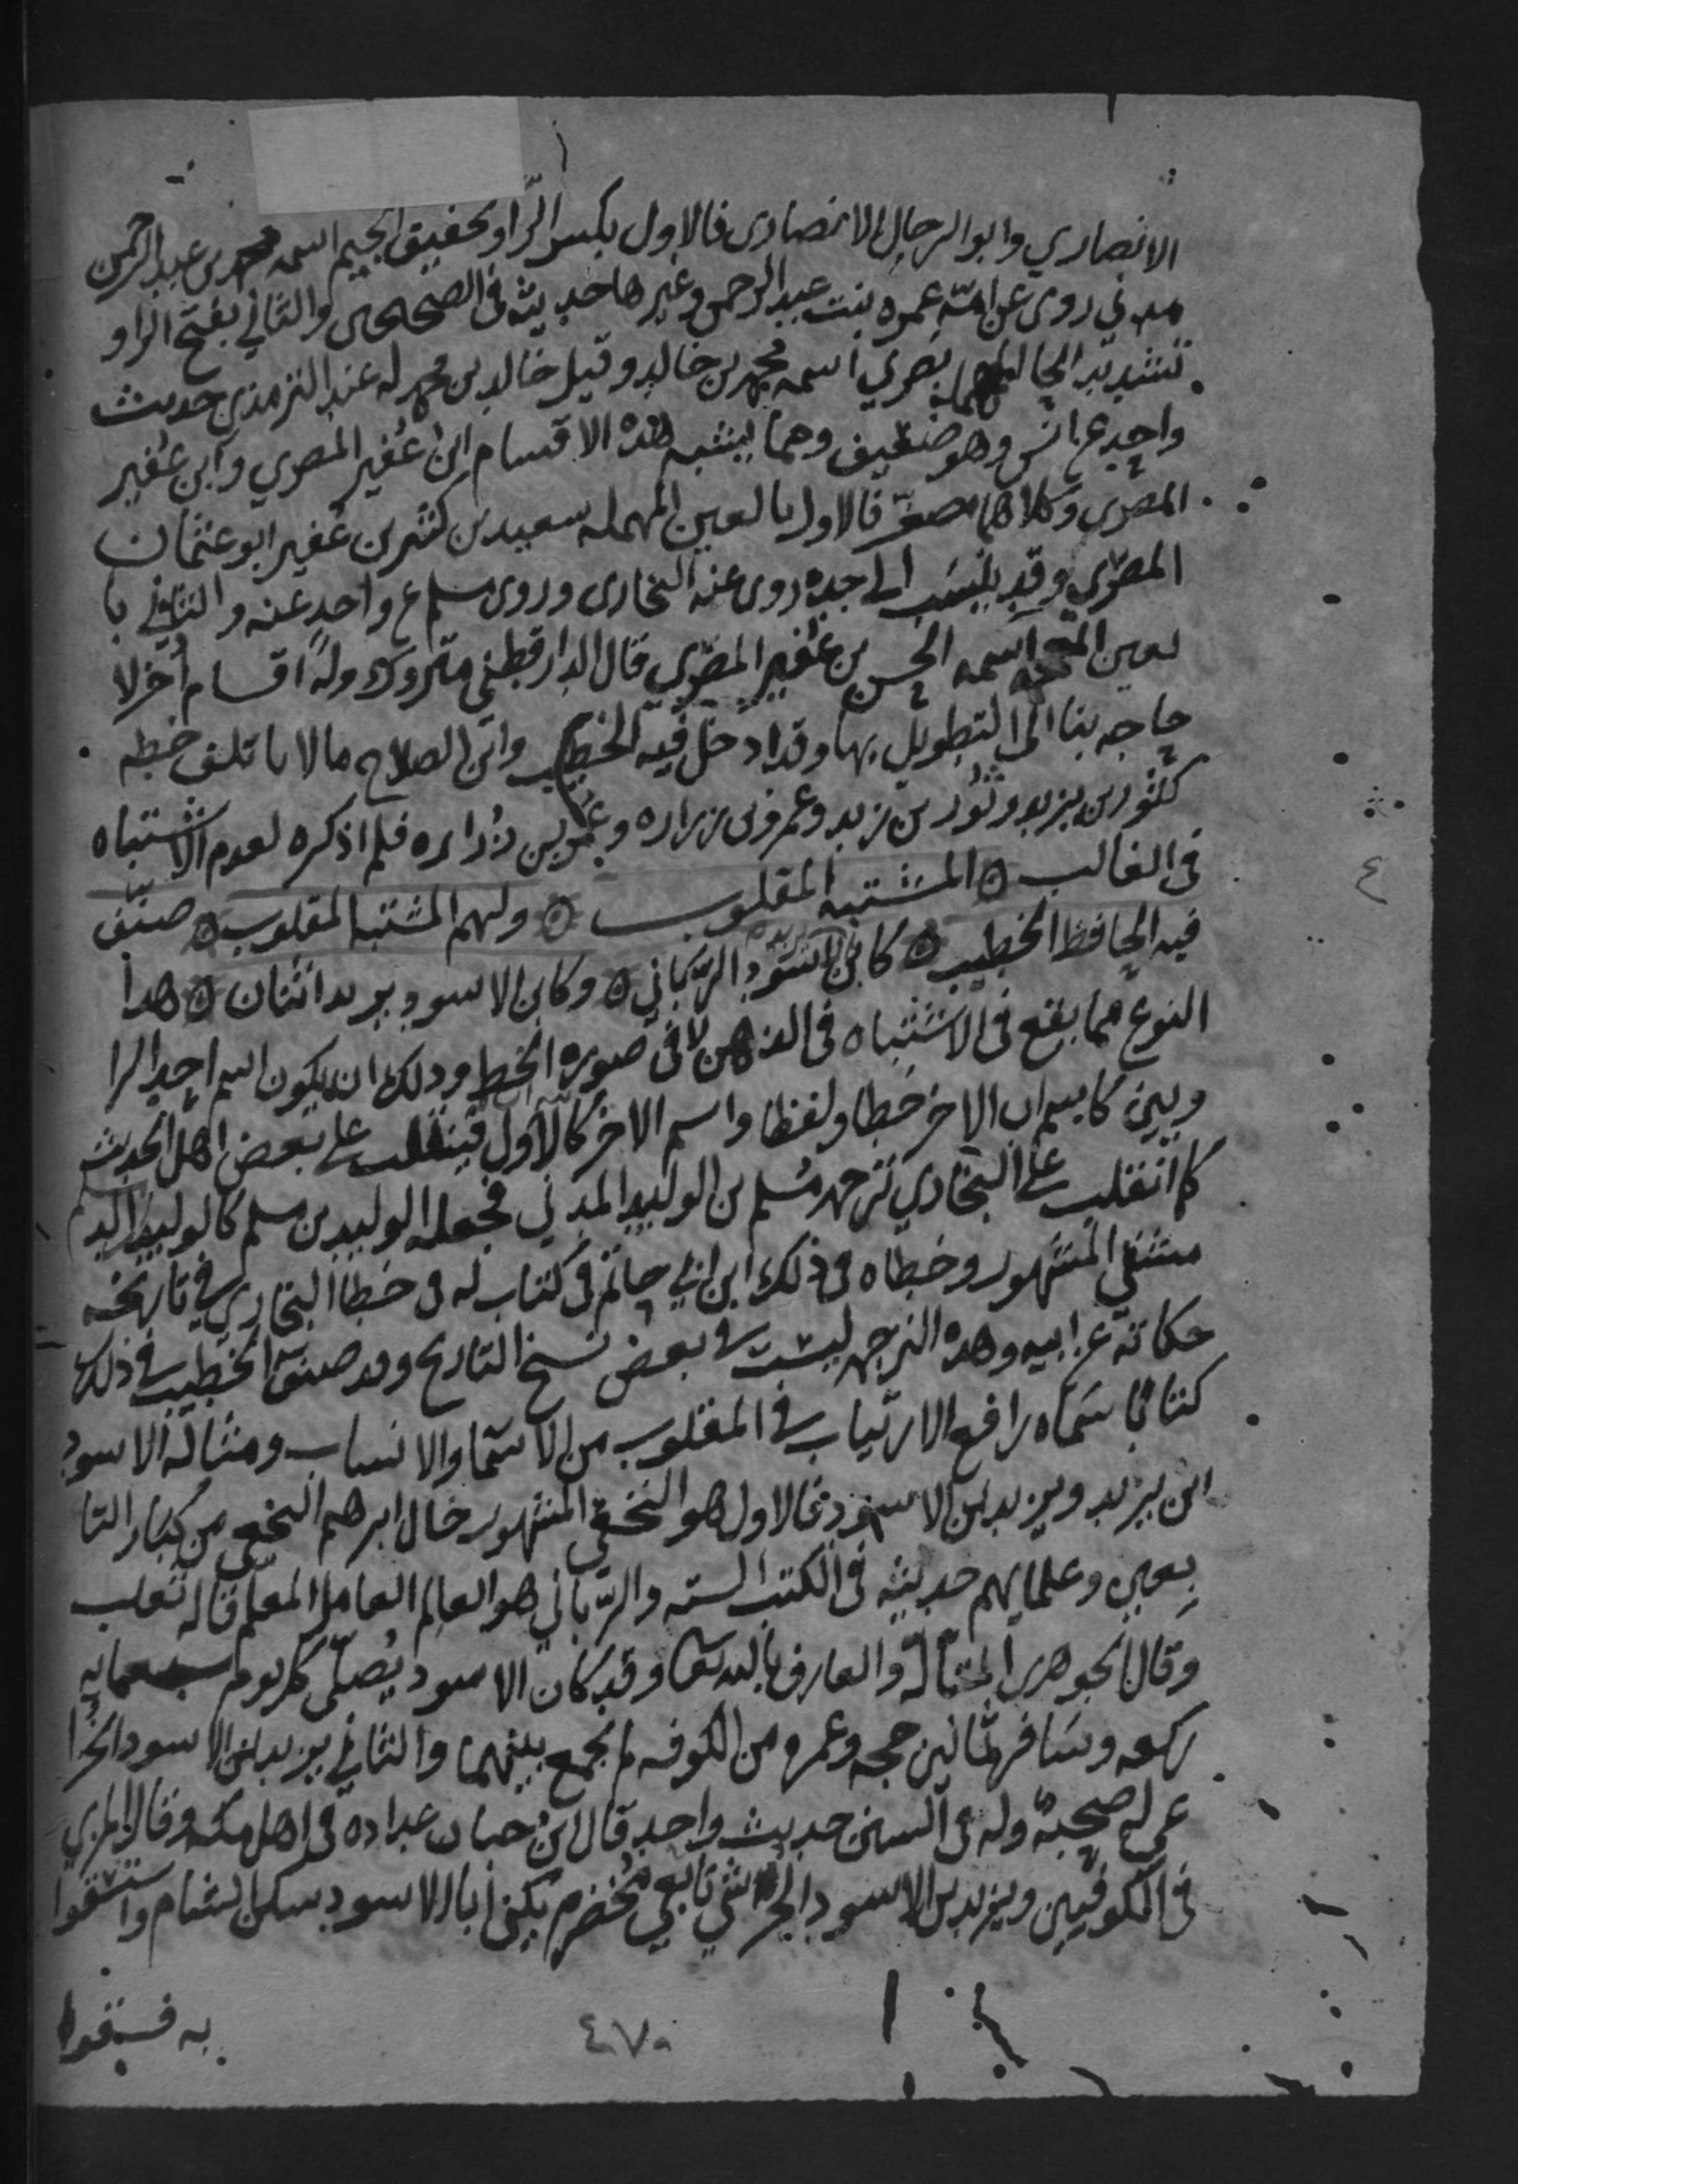 الانصاري وابو الرحال الانصاري فالاول بكسر الرا وتخفيف الجيم اسمه محمد بن عبد الرحمن
مدني روى عن امه عمره بنت عبد الرحمن وغيرها حديثه في الصحيحين والثاني بفتح الرا و
تشديد الحا المهملة بصري اسمه محمد بن خالد وقيل خالد بن محمد له عند الترمذي حديث
واحد عن انس وهو ضعيف ومما يشبه هذه الاقسام ابن عفير المصري وابن غفير
المصري وكلاهما مصغر فالاول بالعين المهمله سعيد بن كثير بن عفير ابو عثمان
المصري وقد ينسب الى جده روى عنه البخارى وروى مسلم عن واحد عنه والثاني با
لغين المعجمه اسمه الحسن بن غفير المصري قال الدارقطني متروك وله اقسام اخر لا
حاجه بنا الى التطويل بها وقد ادخل فيه الخطيب وابن الصلاح مالا ياتلف خطه
كثور بن يزيد وثور بن زيد وعمرو بن زراره وعمر بن زراره فلم اذكره لعدم الاشتباه
في الغالب ۞ المشتبه المقلوب ۞ ولهم المشتبه المقلوب ۞ صنف
فيه الحافظ الخطيب ۞ كابن يزيد الاسود الرباني ۞ وكابن الاسود يزيد اثنان ۞ هذا
النوع مما يقع في الاشتباه في الذهن لا في صورة الخط وذلك ان يكون اسم احد الرا
ويين كاسم اب الاخر خطا ولفظا واسم الاخر كاسم اب الاول فينقلب على بعض اهل الحديث
كما انقلب على البخاري ترجمه مسلم بن الوليد المدني فجعله الوليد بن مسلم كالوليد بن مسلم الد
مشقي المشهور وخطاه في ذلك ابن ابي حاتم في كتاب له في خطا البخاري في تاريخه
حكاية عن ابيه وهذه الترجمه ليست في بعض نسخ التاريخ وقد صنف الخطيب في ذلك
كتابا سماه رافع الارتياب في المقلوب من الاسما والانساب ومثاله الاسود
ابن يزيد ويزيد بن الاسود فالاول هو النخعي المشهور خال ابرهيم النخعي من كبار التا
بعين وعلمايهم حديثه في الكتب السته والرباني هو العالم العامل المعلم قاله ثعلب
وقال الجوهري المتاله والعارف بالله تعالى وقد كان الاسود يصلي كل يوم سبعمايه
ركعه وسافر ثمانين حجه وعمره من الكوفه لم يجمع بينهما والثاني يزيد بن الاسود الخزا
عي له صحبة وله في السنن حديث واحد قال ابن حبان عداده في اهل مكه وقال المزي
في الكوفيين ويزيد بن الاسود الجرشي تابعي مخضرم يكنى ابا الاسود سكن الشام واستسقوا
به فسقوا
٤٧٠
٤